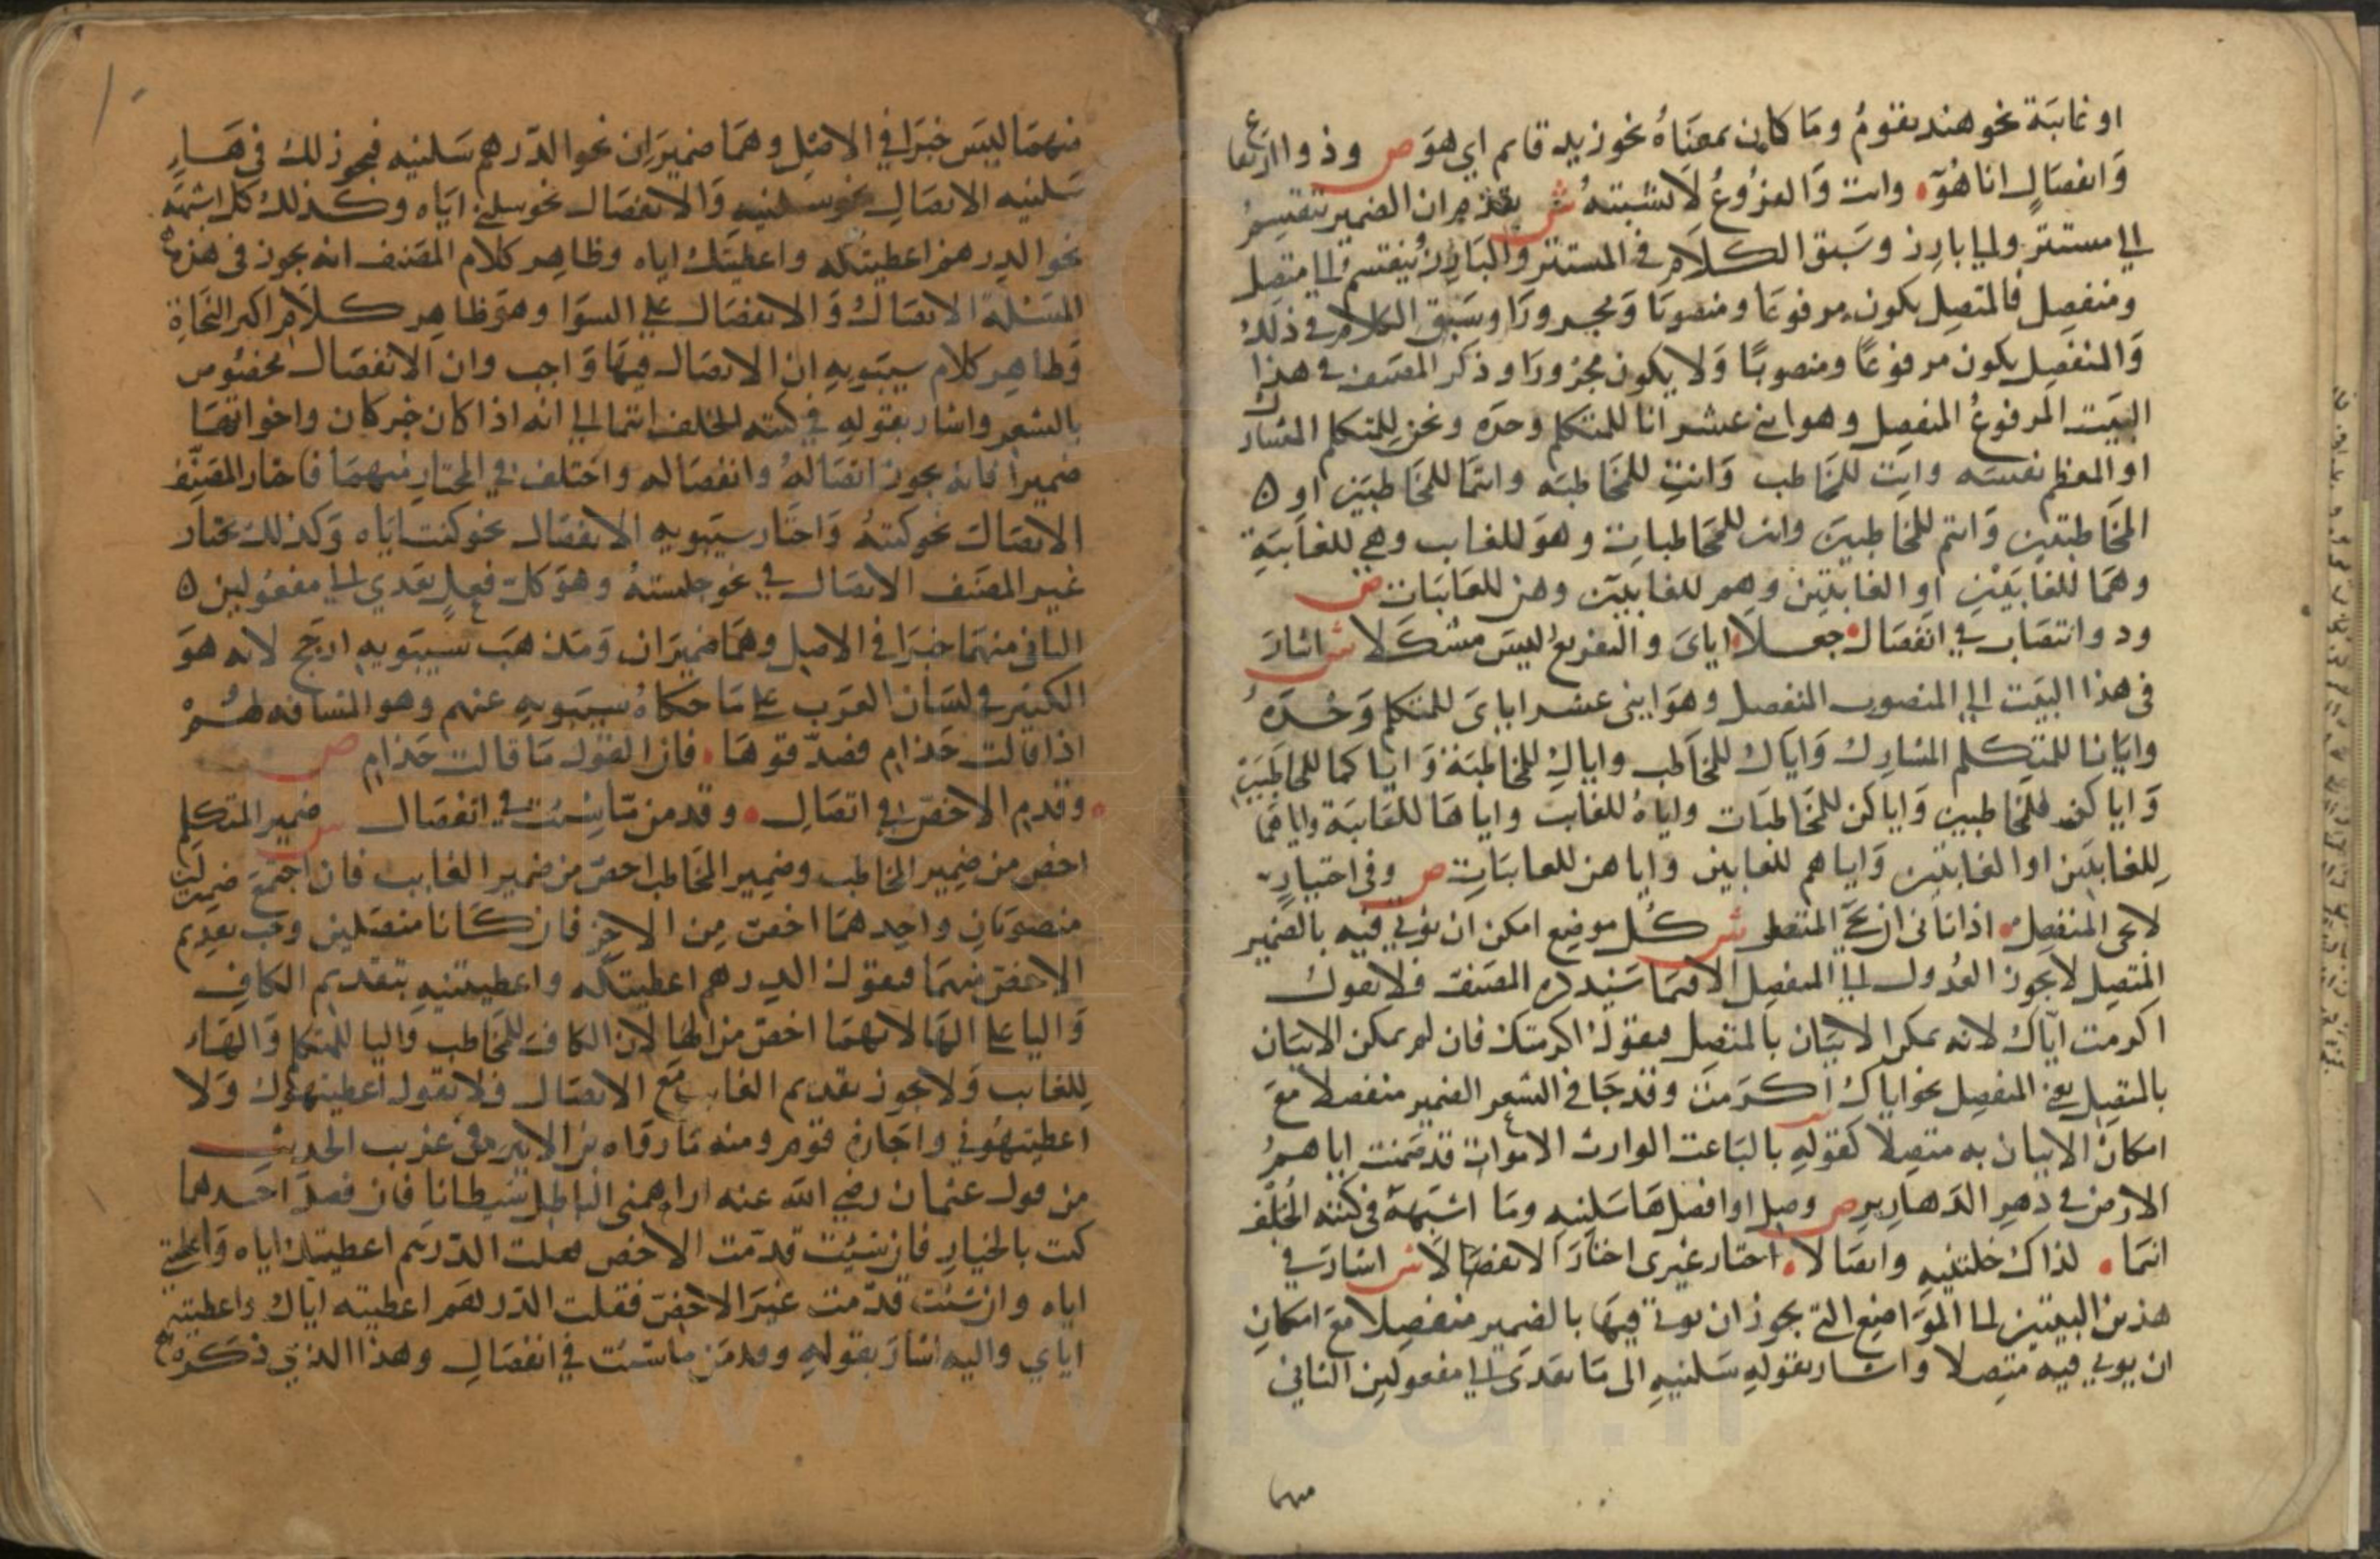 او غائبة نحو هند تقوم وما كان بمعناه نحو زيد قايم اي هو ص وذو ارتفاع
وانفصال انا هو وانت والفروع لا تشتبه ش تقدم ان الضمير ينقسم
الي مستتر والي بارز وسبق الكلام في المستتر والبارز ينقسم الي متصل
ومنفصل فالمتصل يكون مرفوعا ومنصوبا ومجرورا وسبق الكلام في ذلك
والمنفصل يكون مرفوعا ومنصوبا ولا يكون مجرورا وذكر المصنف في هذا
البيت المرفوع المنفصل وهو اثني عشر انا للمتكلم وحده ونحن للمتكلم المشارك
او المعظم نفسه وانت للمخاطب وانت للمخاطبه وانتما للمخاطبين او
المخاطبتين وانتم للمخاطبين وانتن للمخاطبات وهو للغايب وهي للغايبة
وهما للغايبين او الغايبتين وهم للغايبين وهن للغايبات ص
وذو انتصاب في انفصال جعلا اياي والتفريع ليس مشكلا ش اشار
في هذا البيت الي المنصوب المنفصل وهو اثني عشر اياي للمتكلم وحده
وايانا للمتكلم المشارك واياك للمخاطب واياك للمخاطبة واياكما للمخاطبين
واياكم للمخاطبين واياكن للمخاطبات واياه للغايب واياها للغايبة واياهما
للغايبين او الغايبتين واياهم للغايبين واياهن للغايبات ص وفي اختيار
لا يجي المنفصل اذا تاتى ان يجي المتصل ش كل موضع امكن ان يؤتي فيه بالضمير
المتصل لا يجوز العدول الي المنفصل الا فيما سيذكره المصنف فلا تقول
اكرمت اياك لانه يمكن الاتيان بالمتصل فتقول اكرمتك فان لم يمكن الاتيان
بالمتصل تعين المنفصل نحو اياك اكرمت وقد جا في الشعر الضمير منفصلا مع
امكان الاتيان به متصلا كقوله بالباعث الوارث الاموات قد ضمنت اياهم
الارض في دهر الدهارير ص وصل او افصل ها سلنيه وما اشبهه في كنته الخلف
انتما لذاك خلتنيه واتصالا اختار غيري اختار الانفصالا ش اشار في
هذين البيتين الي المواضع التي يجوز ان يوتي فيها بالضمير منفصلا مع امكان
ان يوتي فيه متصلا واشار بقوله سلنيه الى ما يتعدى الي مفعولين الثاني
منهما
منهما ليس خبرا في الاصل وهما ضميران نحو الدرهم سلنيه فيجوز لك في هاء
سلنيه الاتصال نحو سلنيه والانفصال نحو سلني اياه وكذلك كل ما اشبهه
نحو الدرهم اعطيتكه واعطيتك اياه وظاهر كلام المصنف انه يجوز في هذه
المسئلة الاتصال والانفصال علي السوا وهو ظاهر كلام اكثر النحاة
وظاهر كلام سيبويه ان الاتصال فيها واجب وان الانفصال مخصوص
بالشعر واشار بقوله في كنته الخلف انتما الي انه اذا كان خبر كان واخواتها
ضميرا فانه يجوز اتصاله وانفصاله واختلف في المختار منهما فاختار المصنف
الاتصال نحو كنته واختار سيبويه الانفصال نحو كنت اياه وكذلك يختار
غير المصنف الاتصال في نحو خلتنيه وهو كل فعل تعدي الي مفعولين
الثاني منهما خبرا في الاصل وهما ضميران ومذهب سيبويه ارجح لانه هو
الكثير في لسان العرب علي ما حكاه سيبويه عنهم وهو المشافه لهم
اذا قالت حذام فصدقوها فان القول ما قالت حذام ص
وقدم الاخص في اتصال وقدمن ما شئت في انفصال ش ضمير المتكلم
اخص من ضمير المخاطب وضمير المخاطب اخص من ضمير الغايب فان اجتمع ضميرين
منصوبان واحدهما اخص من الاخر فان كانا متصلين وجب تقديم
الاخص منهما فتقول الدرهم اعطيتكه واعطيتنيه بتقديم الكاف
واليا علي الها لانهما اخص من الها لان الكاف للمخاطب واليا للمتكلم والهاء
للغايب ولا يجوز تقديم الغايب مع الاتصال فلا تقول اعطيتهوك ولا
اعطيتهوني واجازه قوم ومنه ما رواه بن الاثير في غريب الحديث
من قول عثمان رضي الله عنه اراهمني الباطل شيطانا فان فصل احدهما
كنت بالخيار فان شئت قدمت الاخص فقلت الدرهم اعطيتك اياه واعطيتني
اياه وان شئت قدمت غير الاخص فقلت الدرهم اعطيته اياك واعطيته
اياي واليه اشار بقوله وقدمن ما شئت في انفصال وهذا الذي ذكره
www.ical.ir